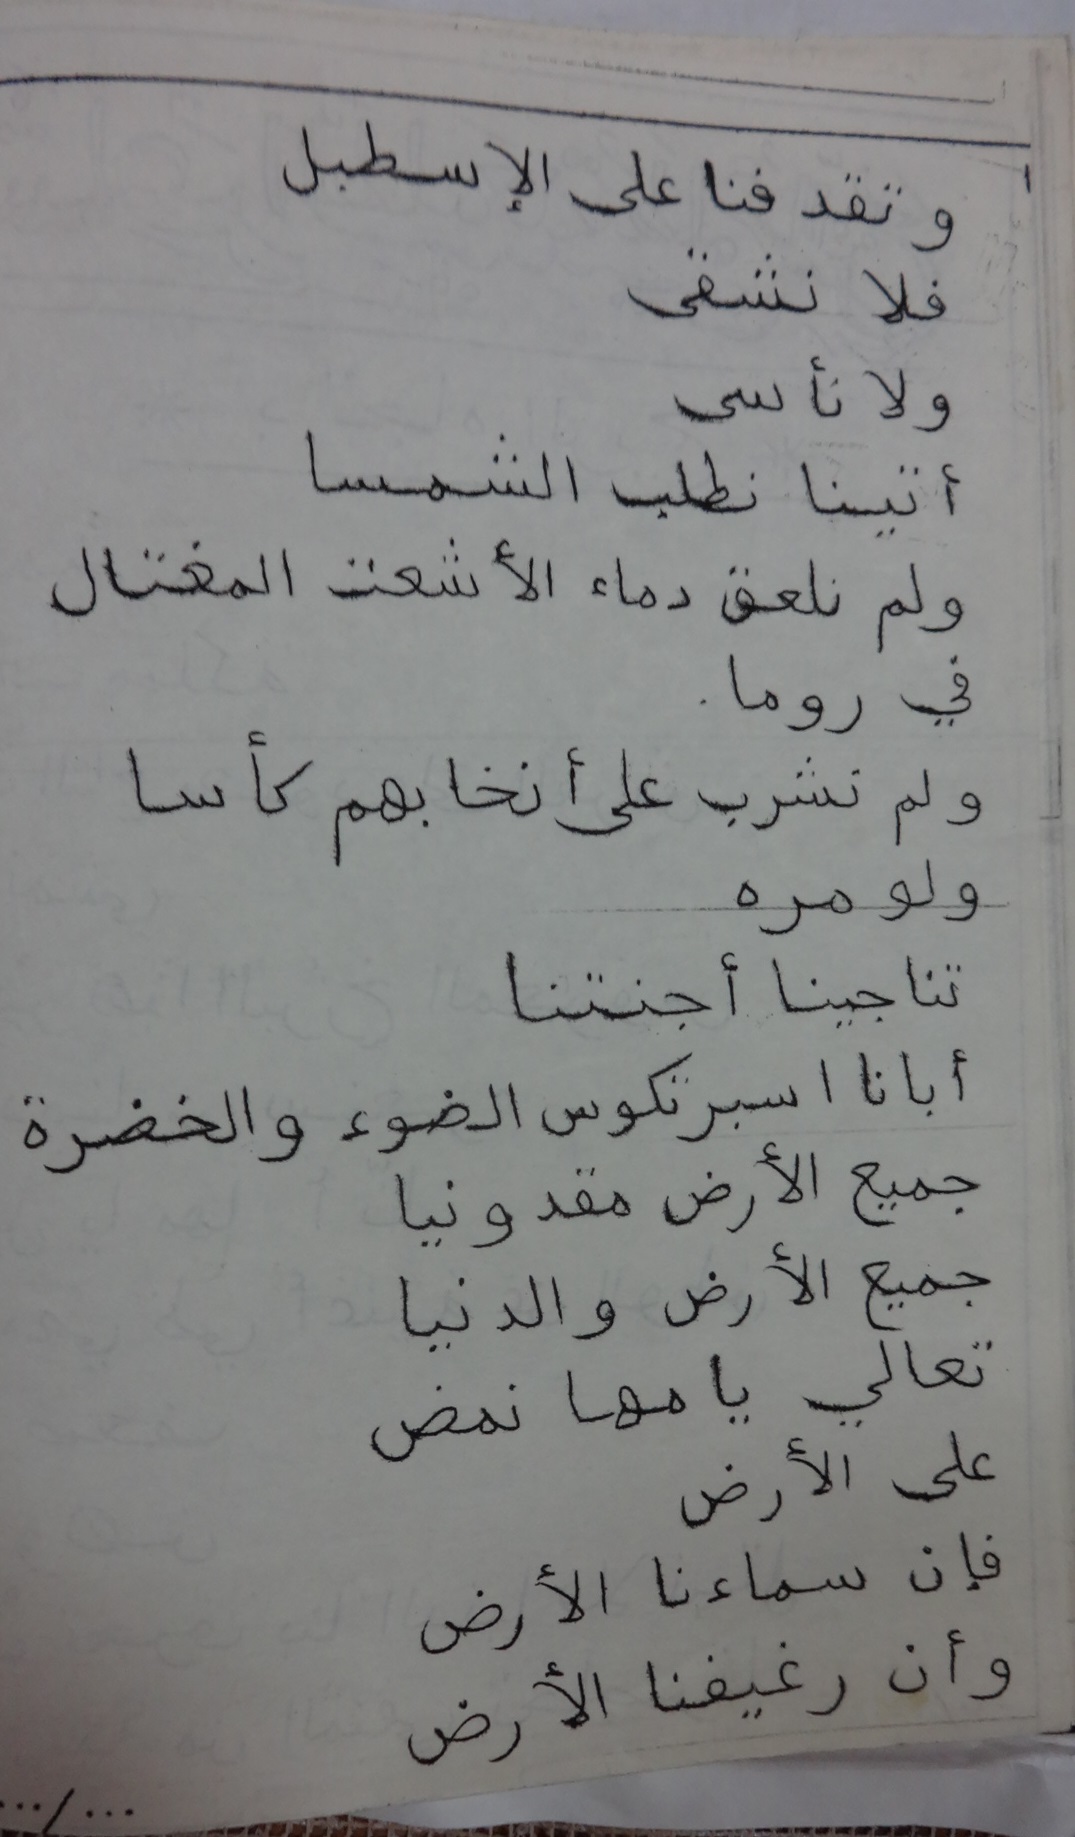 وتقدفنا على الإسطبل
فلا نشقى
ولا نأسى
أتينا نطلب الشمسا
ولم نلعق دماء الأشعت المغتال
في روما.
ولم نشرب على أنخابهم كأسا
ولو مره
تناجينا أجنتنا
أبانا اسبرتكوس الضوء والخضرة
جميع الأرض مقدونيا
جميع الأرض والدنيا
تعالي يا مها نمض
على الأرض
فإن سماءنا الأرض
وأن رغيفنا الأرض
.../...